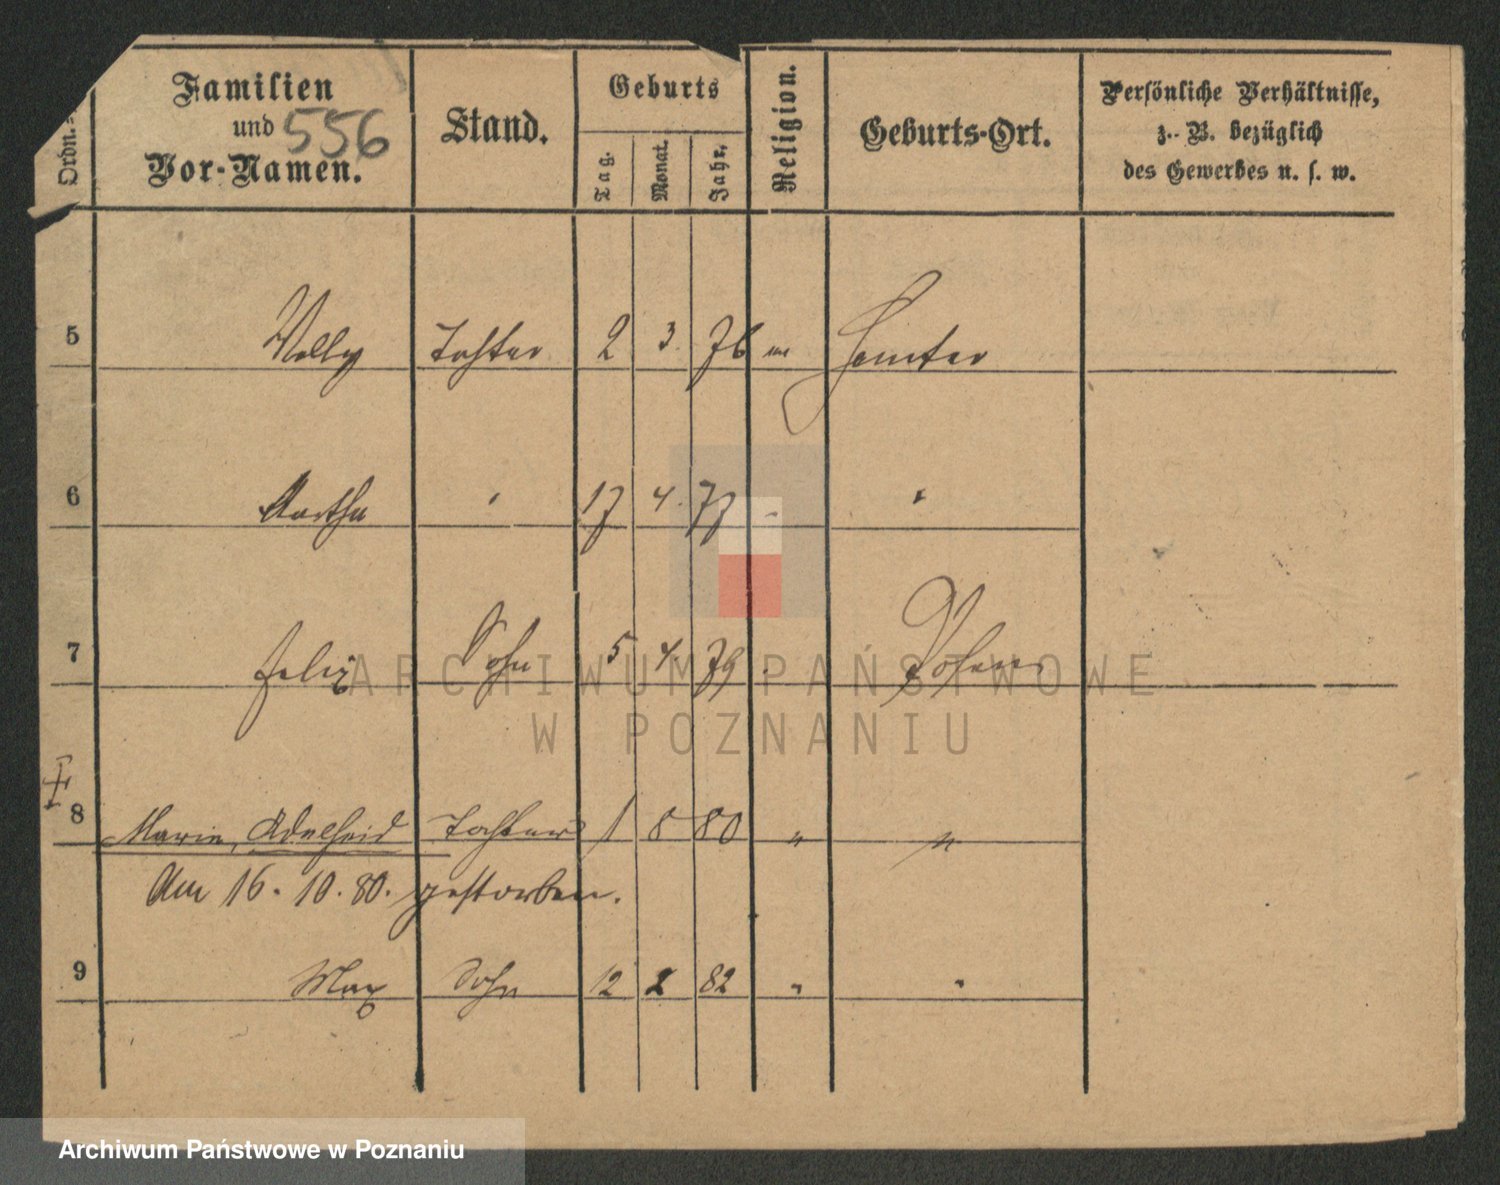 Ordn.=
Familien
und 556
Vor-Namen.
Stand.
Geburts
Tag.
Monat.
Jahr.
Religion.
Geburts-Ort.
Persönliche Verhältnisse,
z. B. bezüglich
des Gewerbes u. s. w.
5 Tochter 2 3. 76
6 " 17 4. 77 " "
7 Felix Sohn 5 4. 79 "
ARCHIWUM PAŃSTWOWE
W POZNANIU
8 Marie, Adelheid Tochter 1 8 80 " "
Am 16. 10. 80. gestorben.
9 Max Sohn 12 2 82 " "
Archiwum Państwowe w Poznaniu